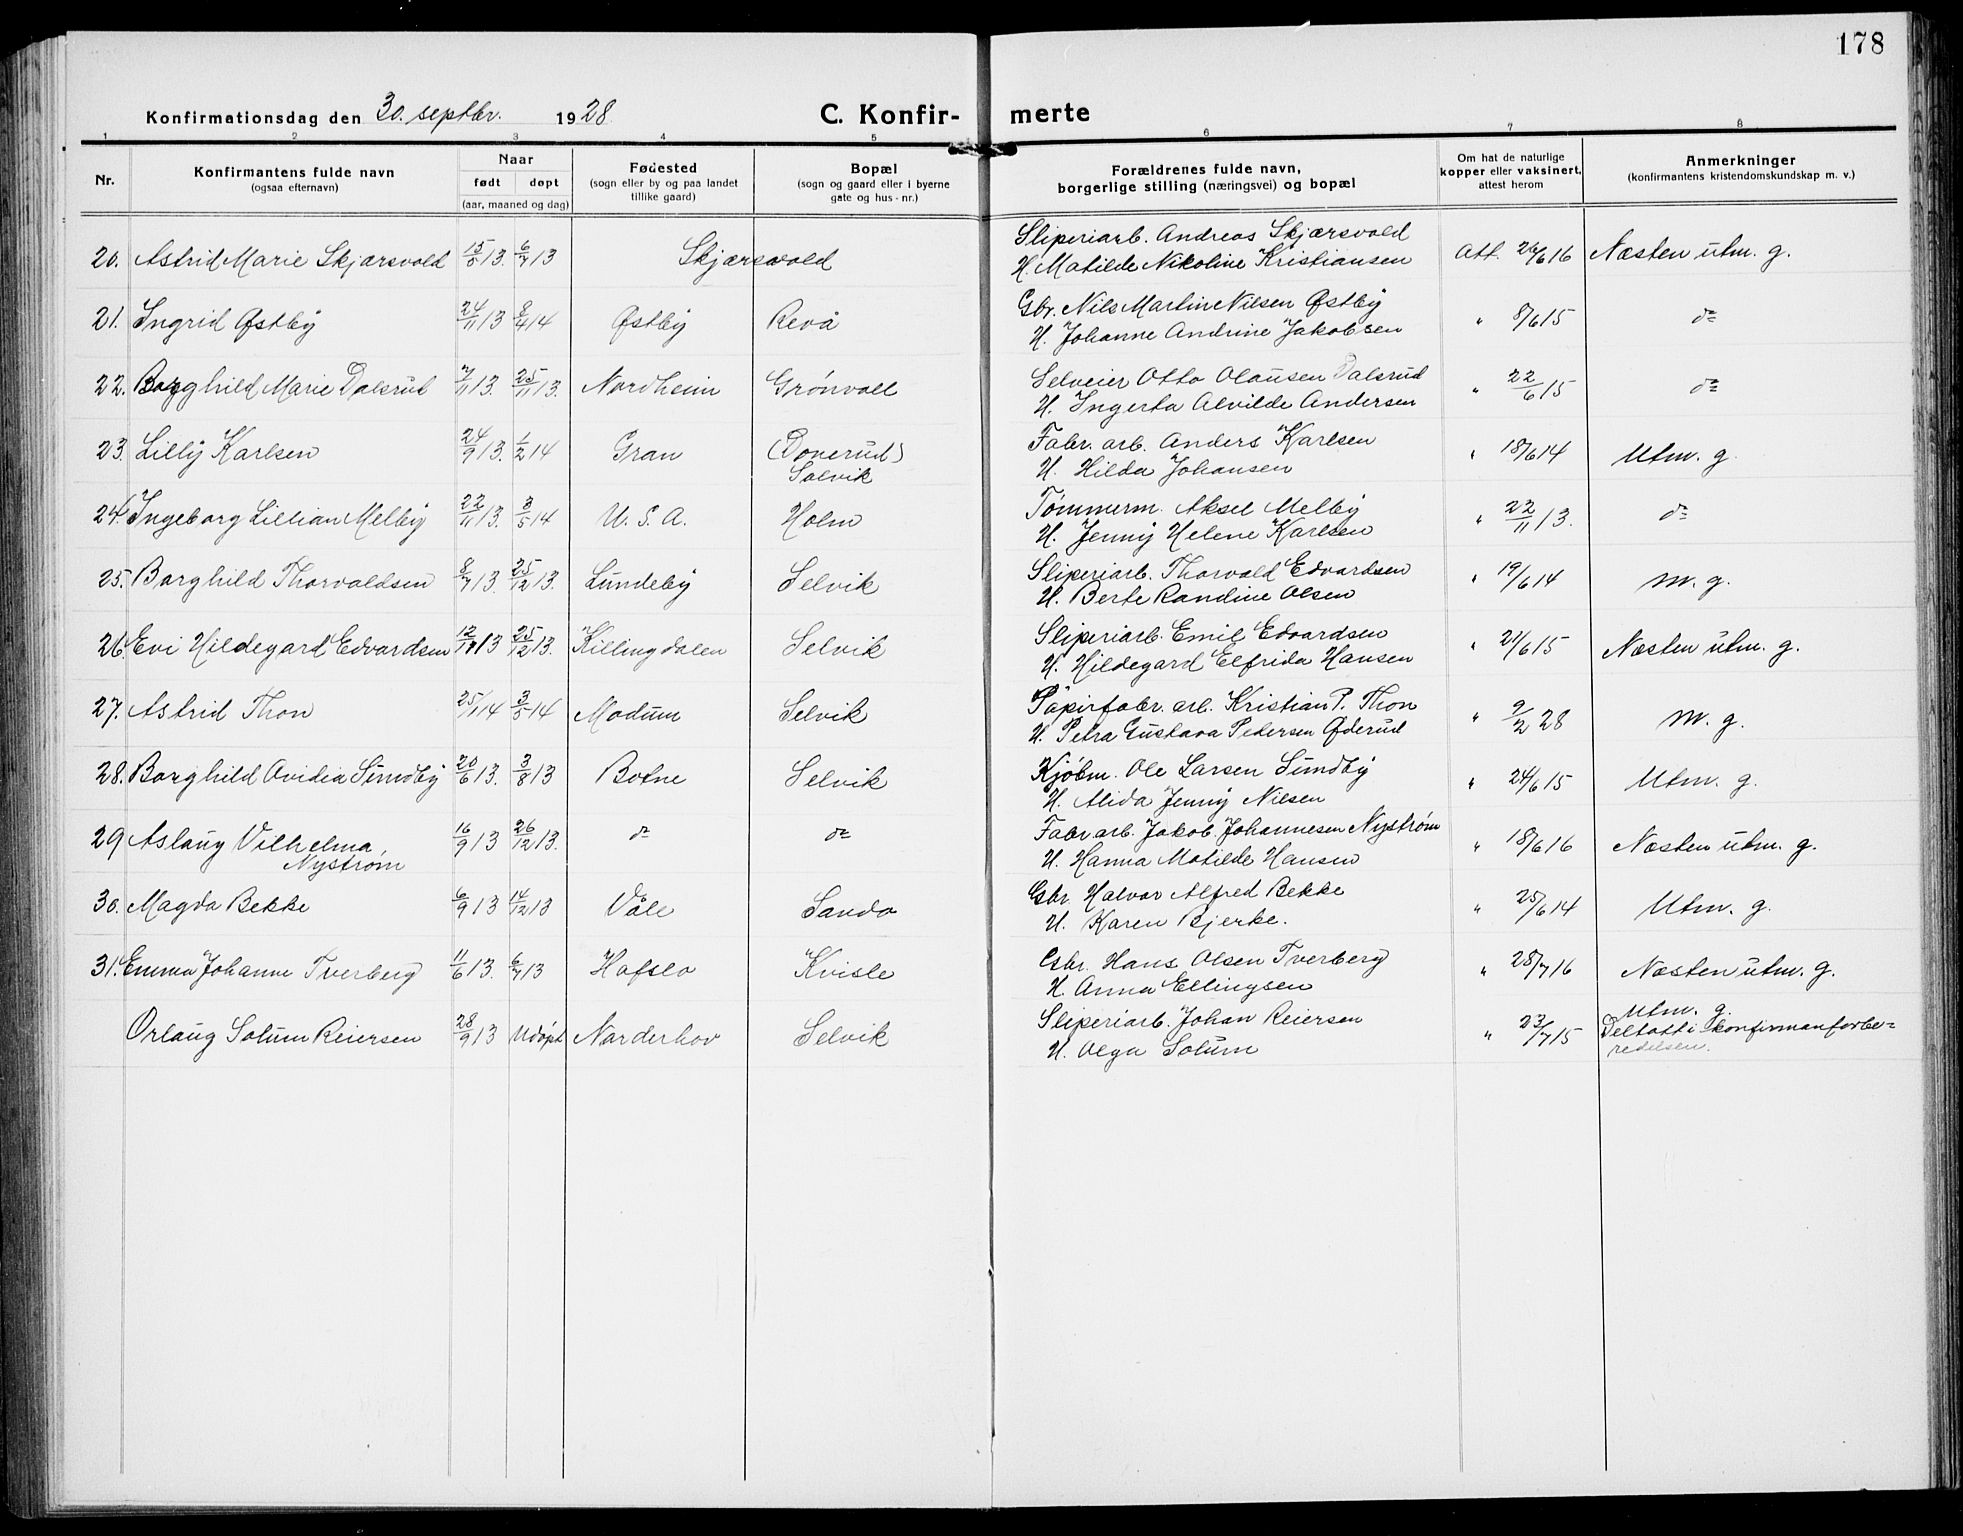 178
Konfirmationsdag den 30. septbr. 1928
C. Konfir- merte
1 2 3 4 5 6 7 8
Nr.
Konfirmantens fulde navn
(ogsaa efternavn)
Naar
født døpt
(aar, maaned og dag)
Fødested
(sogn eller by og paa landet
tillike gaard)
Bopæl
(sogn og gaard eller i byerne
gate og hus-nr.)
Forældrenes fulde navn,
borgerlige stilling (næringsvei) og bopæl
Om hat de naturlige
kopper eller vaksinert,
attest herom
Anmerkninger
(konfirmantens kristendomskundskap m. v.)
20. Astrid Marie Skjærsvold 15/5 13. 6/7 13 Skjærsvold
Sliperiarb. Andreas Skjærsvold
H. Matilde Nikoline Kristiansen
Att. 26/6 16 Næsten utm. g.
21. Ingrid Østby 24/11 13 8/4 14 Østby Revå
Gbr. Nils Martin Nilsen Østby
H. Johanne Andrine Jakobsen
" 8/6 15 do
22. Borghild Marie Dalsrud 7/11 13. 25/11 13. Nordheim Grønvoll
Selveier Otto Olausen Dalsrud
H. Ingerta Alvilde Andersen
" 22/6 15 do
23. Lilly Karlsen 24/9 13. 1/2 14 Gran (Donerud)
Solvik
Fabr. arb. Anders Karlsen
H. Hilda Johansen
" 18/6 14 Utm. g.
24. Ingeborg Lillian Melby 22/11 13. 3/5 14 U. S. A. Holm
Tømmerm. Aksel Melby
H. Jenny Helene Karlsen
" 22/11 13. do
25. Borghild Thorvaldsen 8/7 13. 25/12 13. Lundeby Selvik
Sliperiarb. Thorvald Edvardsen
H. Berte Randine Olsen
" 19/6 14 M. g.
26. Evi Hildegard Edvardsen 12/11 13 25/12 13. Killingdalen Selvik
Sliperiarb. Emil Edvardsen
H. Hildegard Elfrida Hansen
" 21/6 15 Næsten utm. g.
27. Astrid Thon 25/1 14 3/5 14 Modum Selvik
Papirfabr. arb. Kristian P. Thon
H. Petra Gustava Pedersen Øderud
" 9/2 28 M. g.
28. Borghild Ovidia Sundby 20/6 13. 3/8 13 Botne Selvik
Kjøbm. Ole Larsen Sundby
H. Alida Jenny Nilsen
" 24/6 15 Utm. g.
29 Aslaug Vilhelma
Nystrøm 16/9 13 26/12 13. do do
Fabr arb. Jakob Johannesen Nystrøm
H. Hanna Matilde Hansen
" 18/6 16 Næsten utm. g.
30. Magda Bekke 6/9 13 14/12 13 Våle Sando
Gbr. Halvor Alfred Bekke
H. Karen Bjerke.
" 25/6 14 Utm. g.
31. Emma Johanne Tverberg 11/6 13. 6/7 13 Hafslo Kvisle
Gbr. Hans Olsen Tverberg
H. Anna Ellingsen
" 28/7 16 Næsten utm. g.
Orlaug Solum Reiersen 28/9 13 Udøpt Norderhov Selvik
Sliperiarb. Johan Reiersen
H. Olga Solum
" 23/7 15 Utm. g.
Deltatt i konfirmanforbe=
redelsen.